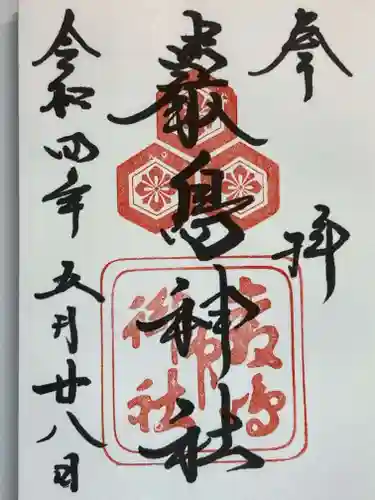 奉拝
嚴島神社
厳島神社
令和四年五月廿八日